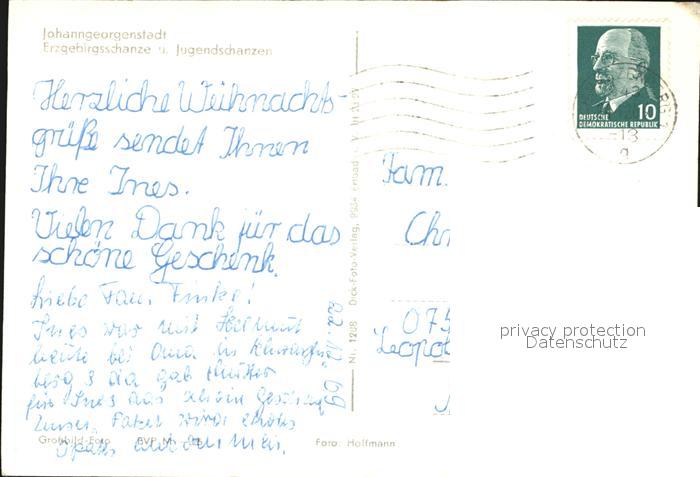 Johanngeorgenstadt
Erzgebirgsschanze u. Jugendschanzen
Herzliche Weihnachts-
grüße sendet Ihnen
Ihre Ines.
Vielen Dank für das
schöne Geschenk.
Liebe Fam. Finke!
Ines war mit Hellmut
heute bei Oma in
berg da gab
für Ines das schöne
Unser Paket wird etwas
später ankommen.
22.12.69
Großbild-Foto
Foto: Hoffmann
Nr. 1208 Dick-Foto-Verlag, 9934 Erlbach i. V.
DEUTSCHE
DEMOKRATISCHE REPUBLIK
10
-18
Fam.
Chr
075
Leopol
privacy protection
Datenschutz